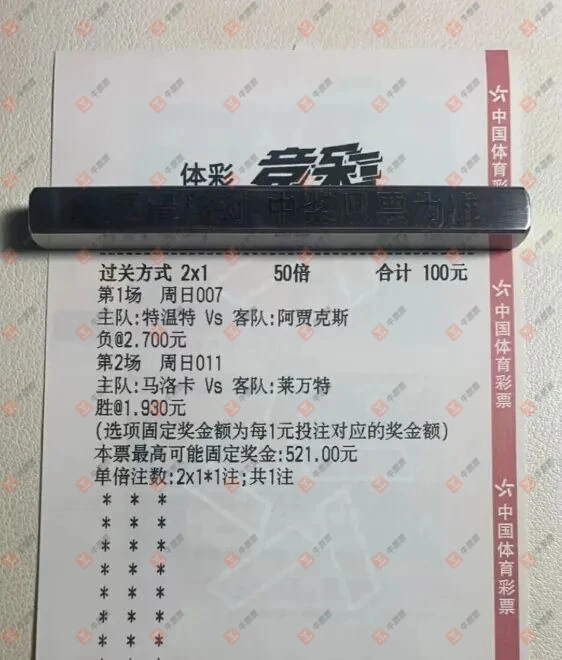 体彩 竞彩
中奖以票为准
过关方式 2x1 50倍 合计 100元
第1场 周日007
主队:特温特 Vs 客队:阿贾克斯
负@2.700元
第2场 周日011
主队:马洛卡 Vs 客队:莱万特
胜@1.930元
(选项固定奖金额为每1元投注对应的奖金额)
本票最高可能固定奖金:521.00元
单倍注数:2x1*1注;共1注
* * *
* * *
* * *
* * *
* * *
* * *
* * *
中国体育彩
中国体育彩票
中国体育彩票
牛恩票